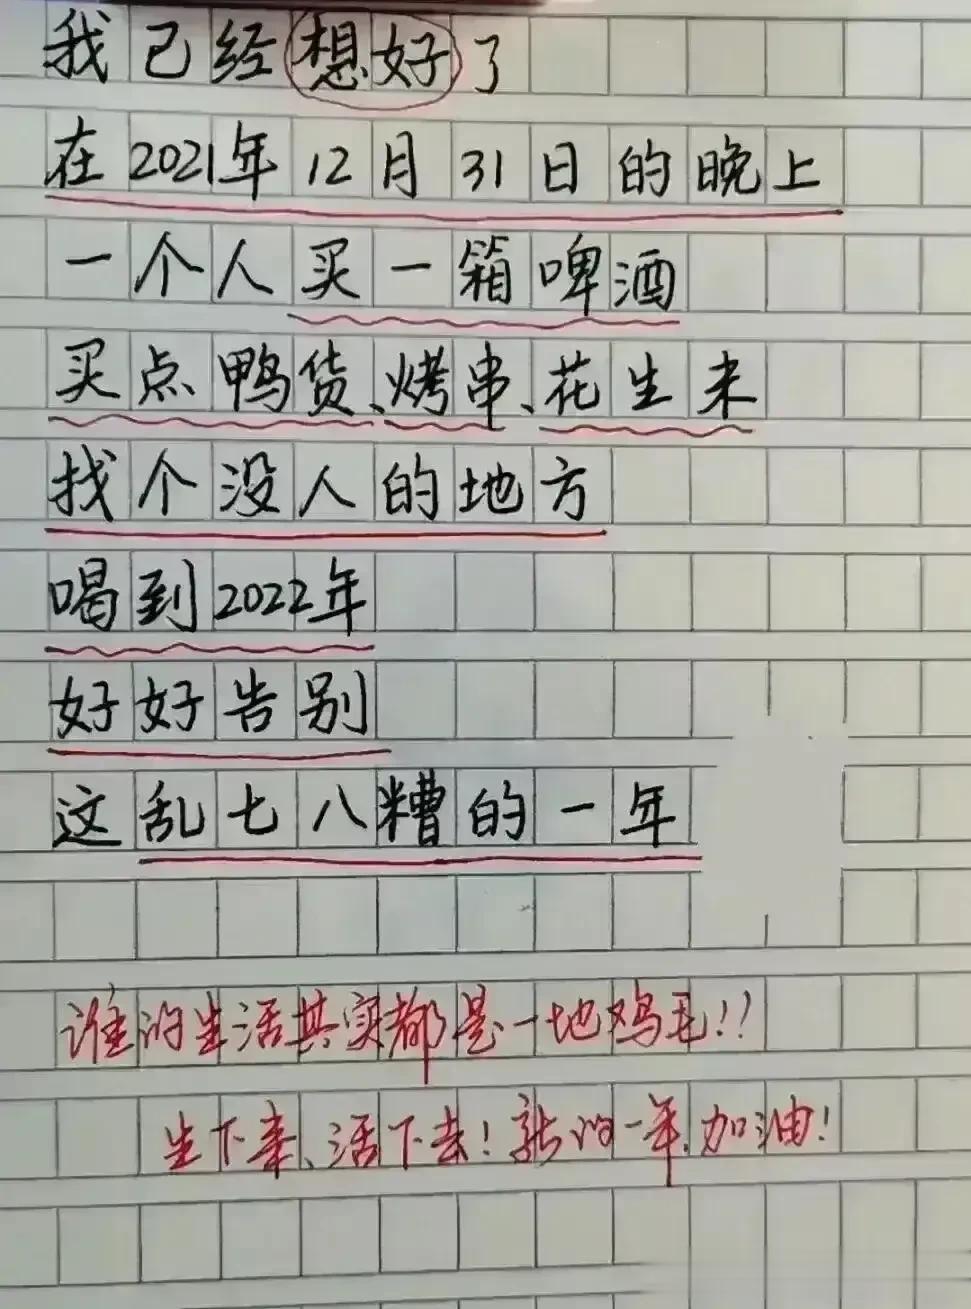 我已经想好了
在2021年12月31日的晚上
一个人买一箱啤酒
买点鸭货、烤串、花生米
找个没人的地方
喝到2022年
好好告别
这乱七八糟的一年
谁的生活其实都是一地鸡毛!!
生下来、活下去!新的一年,加油!